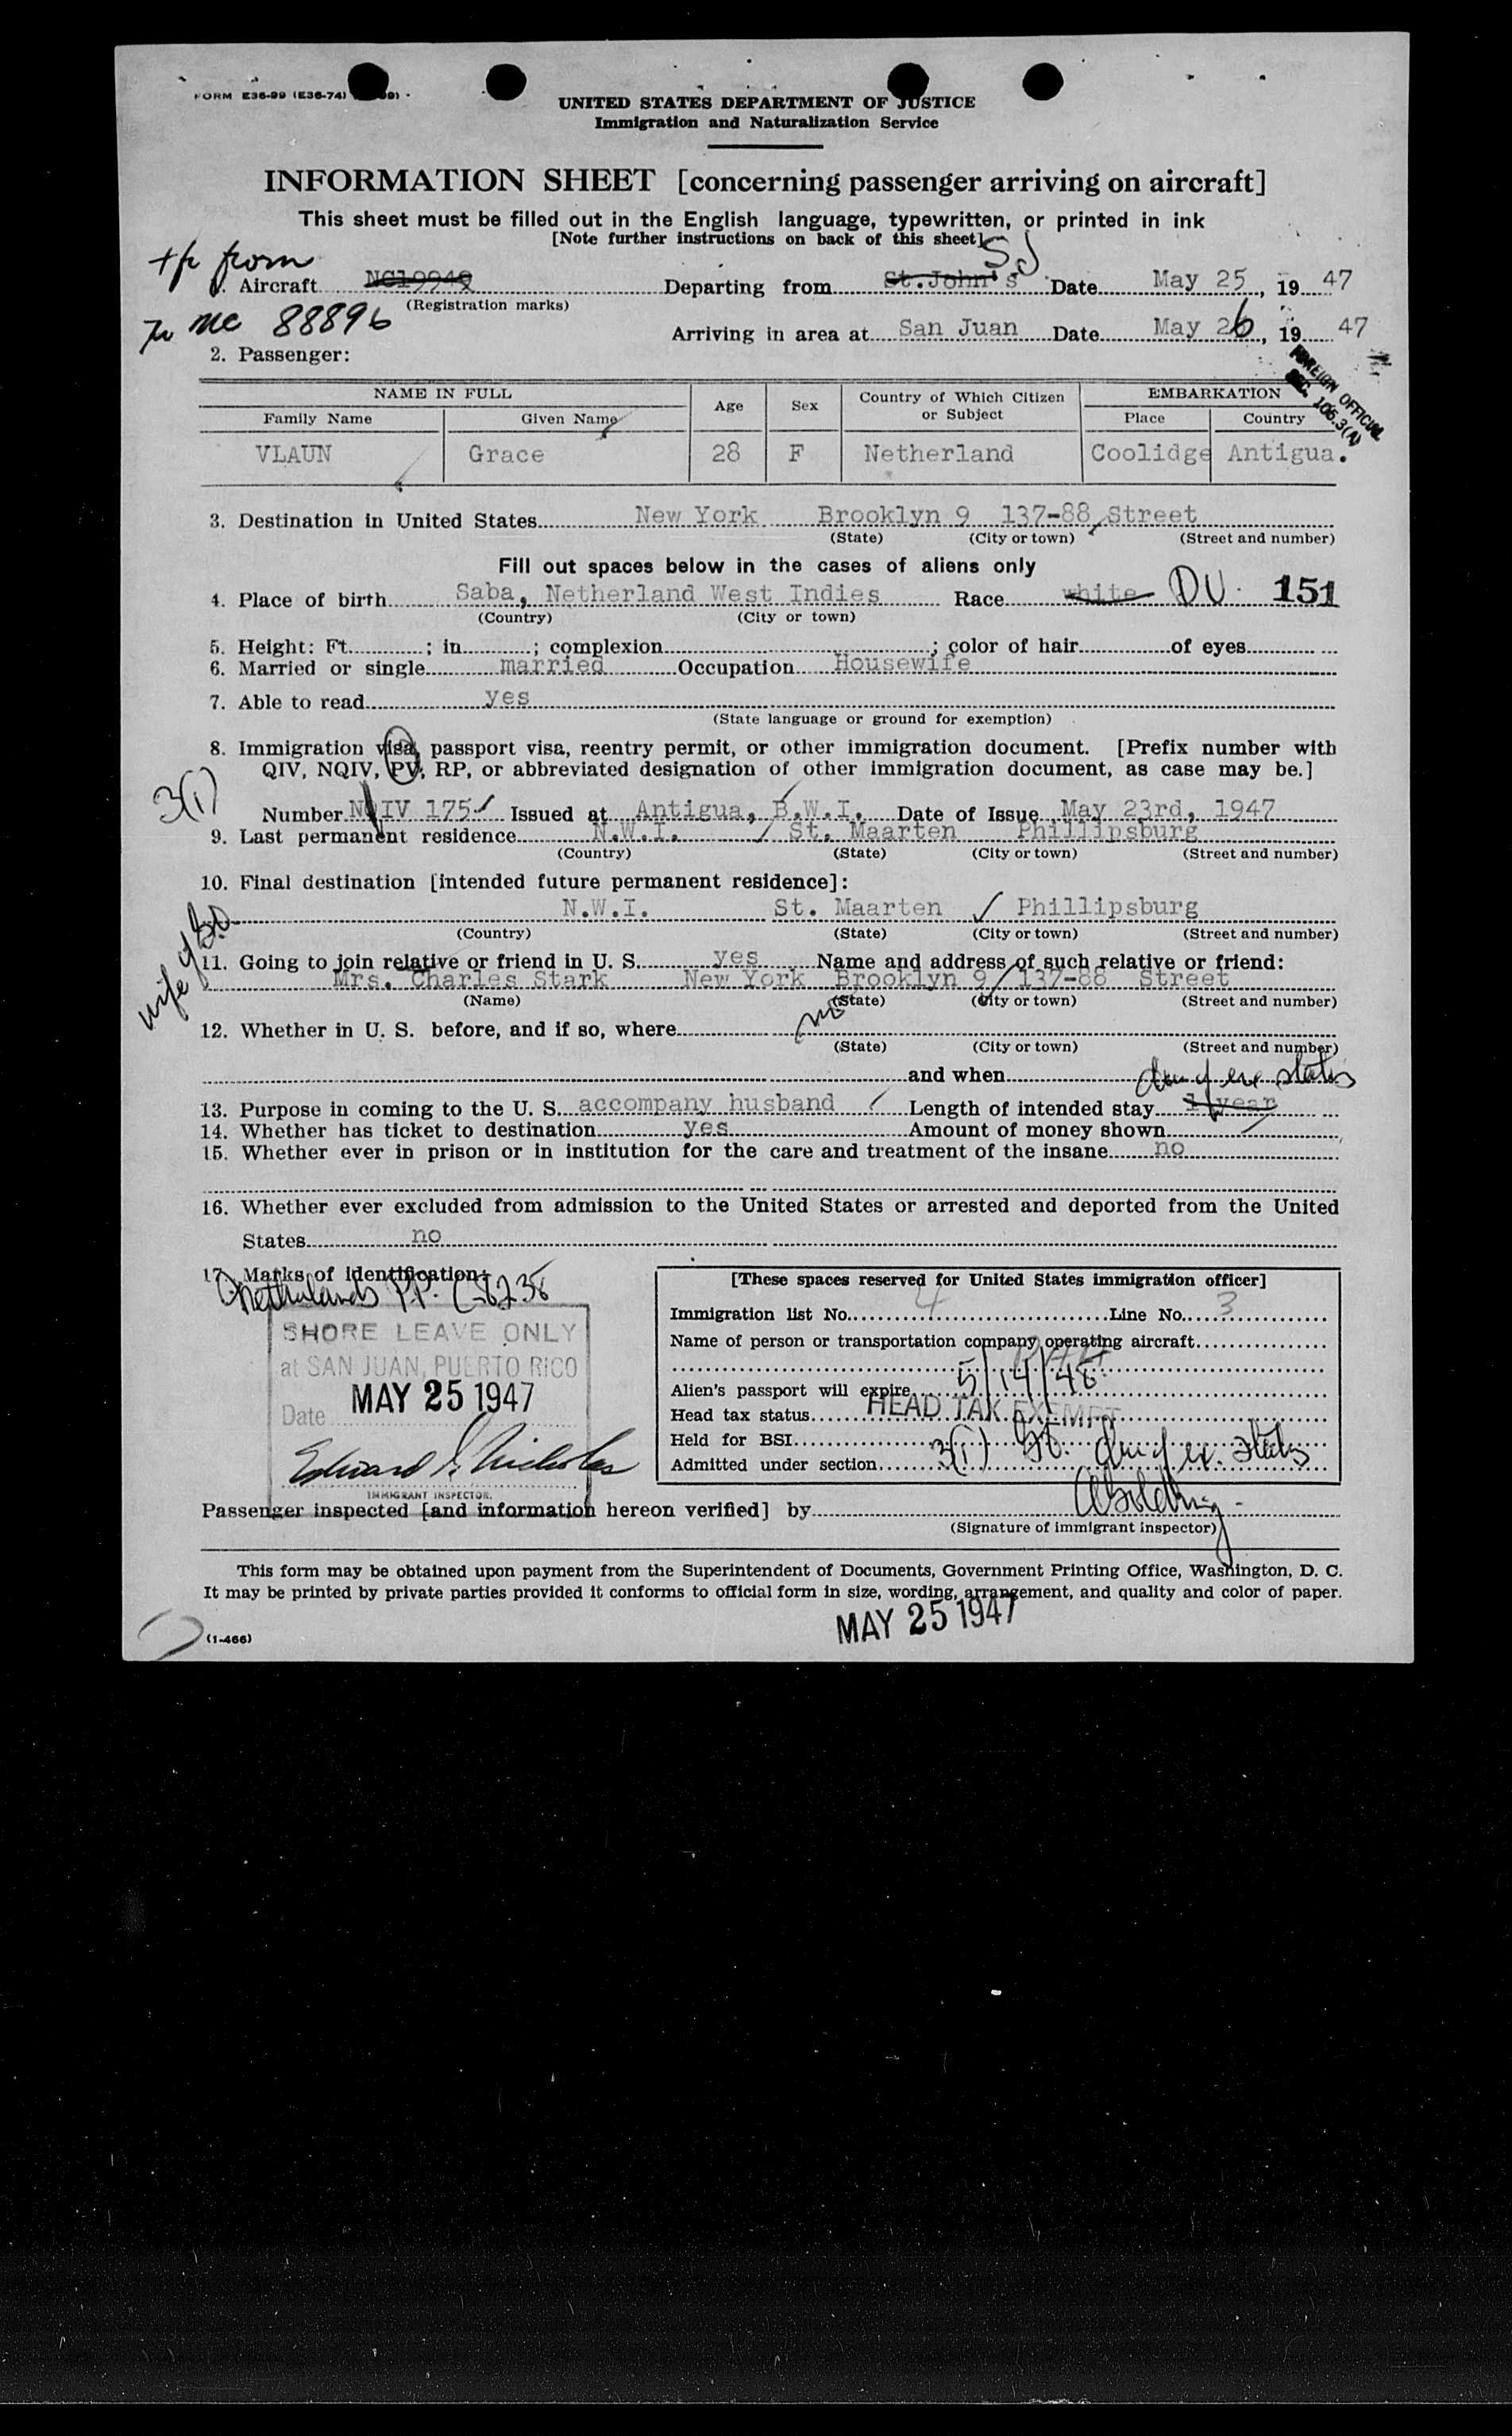 FORM E36-99 (E36-74)
UNITED STATES DEPARTMENT OF JUSTICE
Immigration and Naturalization Service
INFORMATION SHEET [concerning passenger arriving on aircraft]
This sheet must be filled out in the English language, typewritten, or printed in ink
[Note further instructions on back of this sheet]
from SJ
Aircraft NC19949 Departing from St. John's Date May 25, 1947
(Registration marks)
NC 88896
Arriving in area at San Juan Date May 26, 1947
2. Passenger:
FOREIGN OFFICIAL
SEC. 106.3(A)
NAME IN FULL Age Sex Country of Which Citizen or Subject EMBARKATION
Family Name Given Name Place Country
VLAUN Grace 28 F Netherland Coolidge Antigua.
3. Destination in United States New York Brooklyn 9 137-88 Street
(State) (City or town) (Street and number)
Fill out spaces below in the cases of aliens only
4. Place of birth Saba, Netherland West Indies Race white DU. 151
(Country) (City or town)
5. Height: Ft. ; in. ; complexion ; color of hair of eyes
6. Married or single married Occupation Housewife
7. Able to read yes
(State language or ground for exemption)
8. Immigration visa, passport visa, reentry permit, or other immigration document. [Prefix number with
QIV, NQIV, PV, RP, or abbreviated designation of other immigration document, as case may be.]
3(1)
Number NQIV 175 Issued at Antigua, B.W.I. Date of Issue May 23rd, 1947
9. Last permanent residence N.W.I. St. Maarten Phillipsburg
(Country) (State) (City or town) (Street and number)
10. Final destination [intended future permanent residence]:
N.W.I. St. Maarten Phillipsburg
(Country) (State) (City or town) (Street and number)
wife of
11. Going to join relative or friend in U. S. yes Name and address of such relative or friend:
Mrs. Charles Stark New York Brooklyn 9 137-88 Street
(Name) (State) (City or town) (Street and number)
12. Whether in U. S. before, and if so, where no
(State) (City or town) (Street and number)
and when
status
13. Purpose in coming to the U. S. accompany husband Length of intended stay 1 year
14. Whether has ticket to destination yes Amount of money shown
15. Whether ever in prison or in institution for the care and treatment of the insane no
16. Whether ever excluded from admission to the United States or arrested and deported from the United
States no
17. Marks of identification:
Netherlands P.P.
SHORE LEAVE ONLY
at SAN JUAN, PUERTO RICO
Date MAY 25 1947
Edward Nicholas
IMMIGRANT INSPECTOR.
[These spaces reserved for United States immigration officer]
Immigration list No. 4 Line No. 3
Name of person or transportation company operating aircraft
PAA
Alien's passport will expire 5/14/48
Head tax status HEAD TAX EXEMPT
Held for BSI
Admitted under section 3(1) status
Passenger inspected [and information hereon verified] by
(Signature of immigrant inspector)
This form may be obtained upon payment from the Superintendent of Documents, Government Printing Office, Washington, D. C.
It may be printed by private parties provided it conforms to official form in size, wording, arrangement, and quality and color of paper.
MAY 25 1947
(1-466)